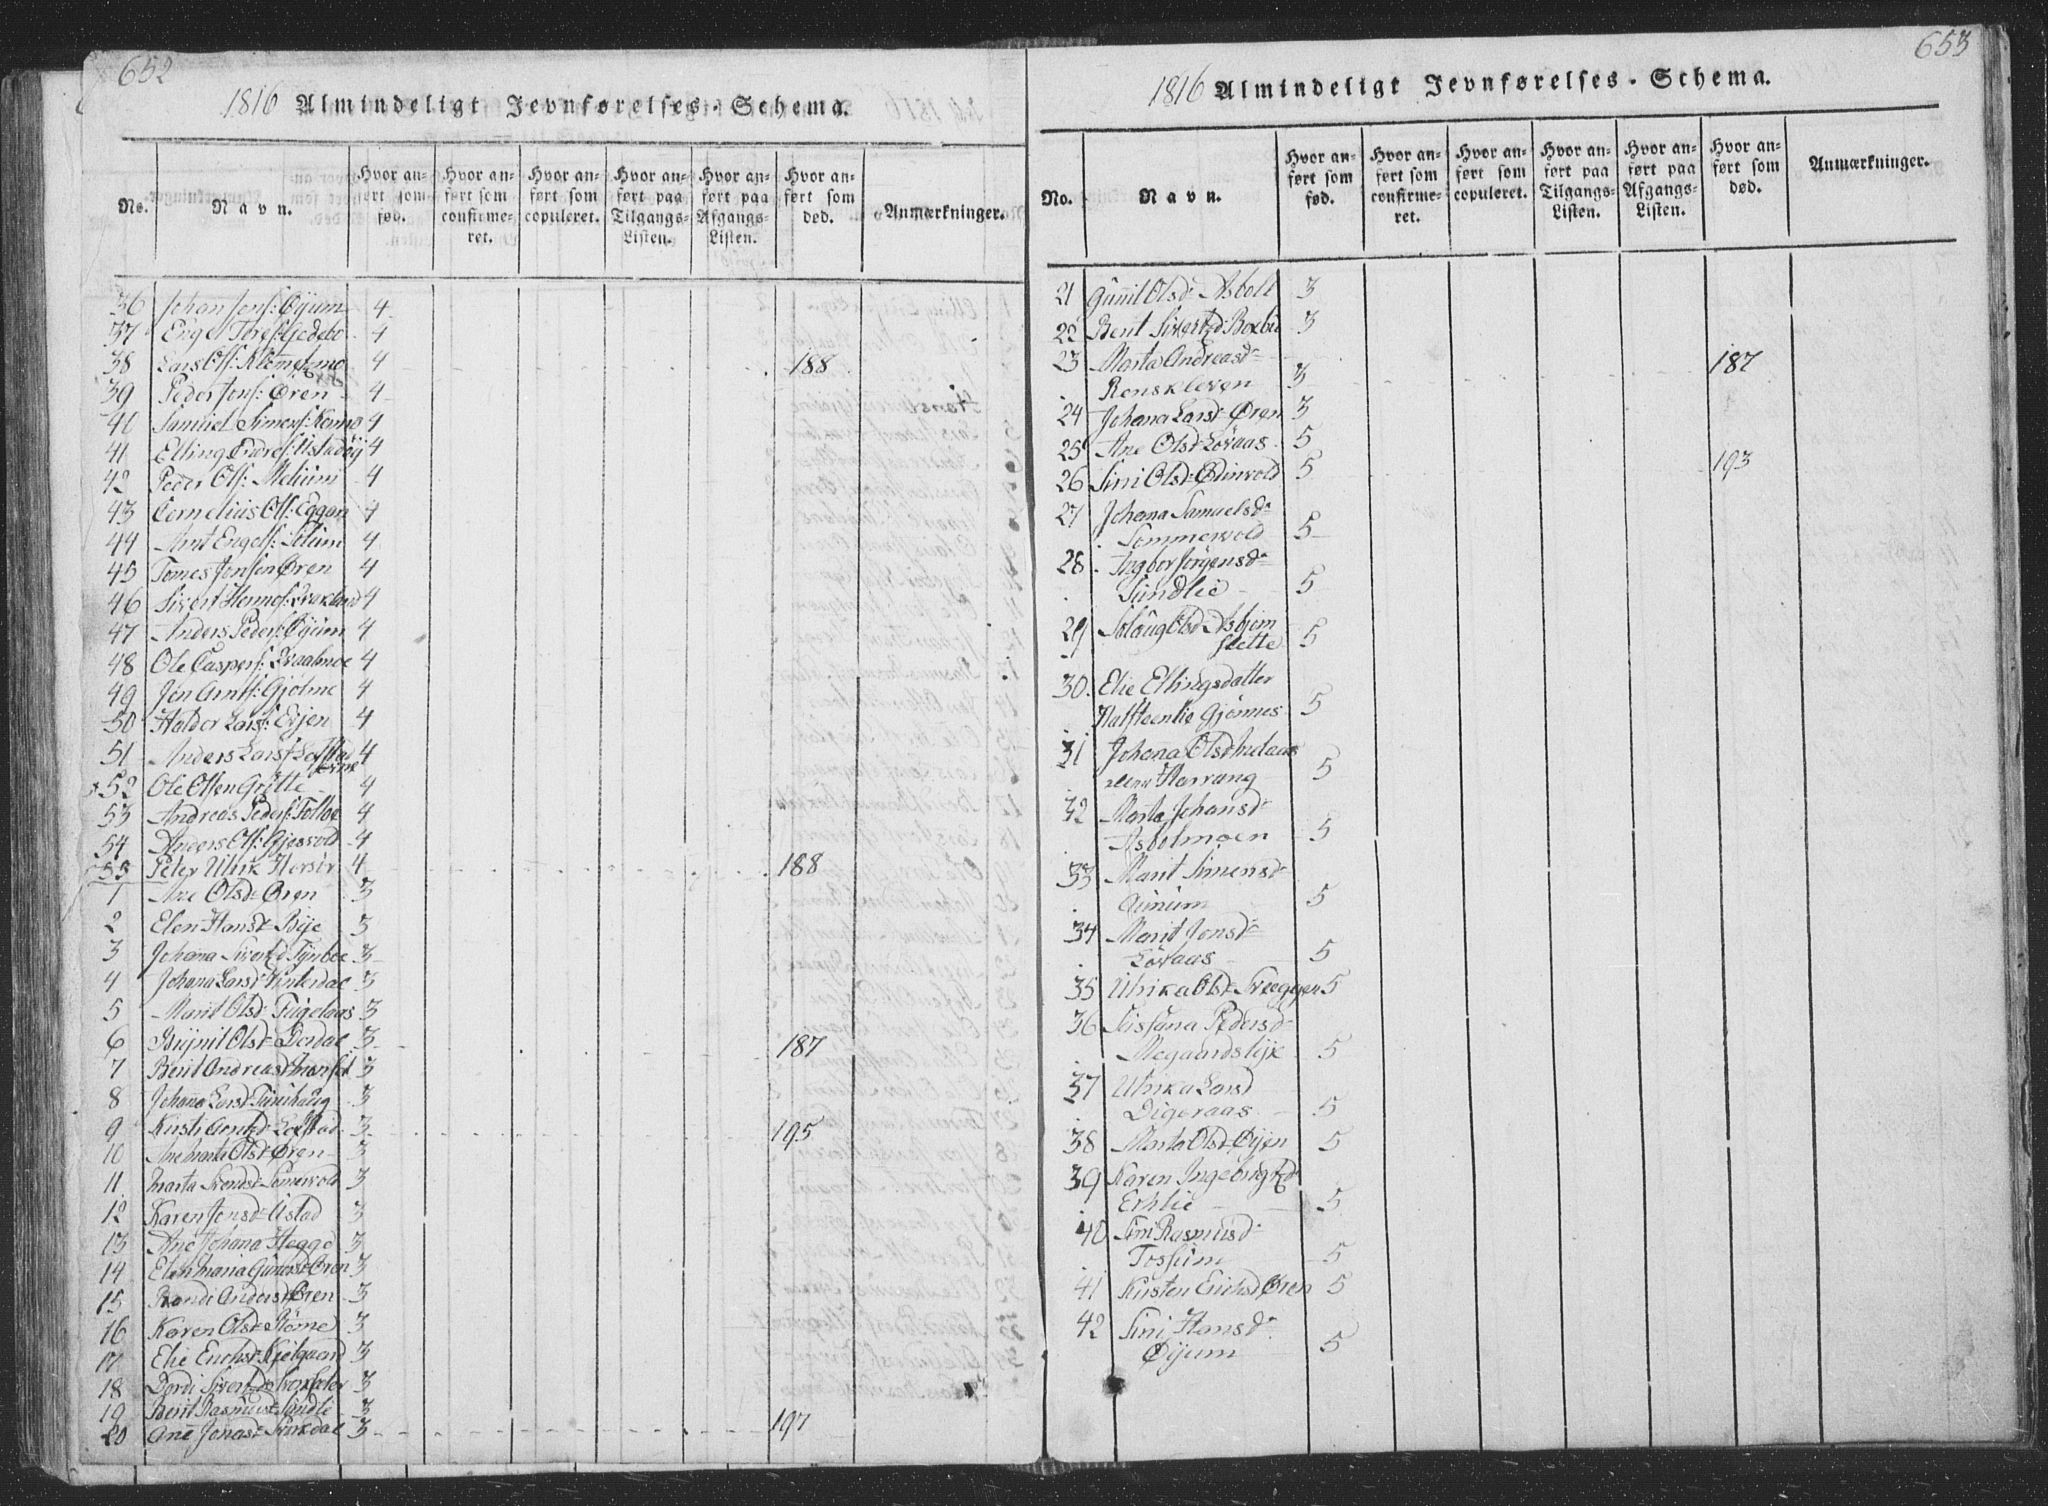 652
1816 Almindeligt Jevnførelses-Schema.
No. Navn. Hvor anført som fød. Hvor anført som confirmeret. Hvor anført som copuleret. Hvor anført paa Tilgangs-Listen. Hvor anført paa Afgangs-Listen. Hvor anført som død. Anmærkninger.
36 Johan Jonss: Øÿum 4
37 Engel 4
38 Lars Ols: Klemetzmo 4 188
39 Peder Jons: Øren 4
40 Samuel Simens: 4
41 Elling 4
42 Peder Ols: Melium 4
43 Cornelius Ols: Eggan 4
44 Arnt Engels: Solum 4
45 Tomes Jonsen Øren 4
46 Sivert 4
47 Anders Peders: Øÿum 4
48 Ole Caspers: Kvaalmoe 4
49 Jon Arnts: Gjølme 4
50 Haldor Lars: Evjen 4
51 Anders Lars: 4
52 Ole Olsen Gritte 4
53 Andreas Peders: 4
54 Anders Ols: Gjesvold 4
55 Peter Ulrik 4 188
1 Ane Olsd: Øren 3
2 Elen Hansd: Bÿe 3
3 Johana Sivertzd 3
4 Johana Larsd: Vinterdal 3
5 Marit Olsd: Fugelaas 3
6 Olsd: 3 187
7 Berit Andreasd 3
8 Johana Larsd 3
9 Kirsti Arntzd 3 195
10 Ane Marta Olsd: Øren 3
11 Marta Svendsd: Somervold 3
12 Karen Jonsd: Ustad 3
13 Ane Johana Hegge 3
14 Elen Maria Gunersd: Øren 3
15 Randi Andersd: Øren 3
16 Karen Olsd: Rømme 3
17 Elie Erichsd: Kjelgaard 3
18 Dordi Sivertzd: 3
19 Berit Rasmusd: Sundli 3
20 Ane Jonasd: Svinkdal 3 197
653
1816 Almindeligt Jevnførelses-Schema.
No. Navn. Hvor anført som fød. Hvor anført som confirmeret. Hvor anført som copuleret. Hvor anført paa Tilgangs-Listen. Hvor anført paa Afgangs-Listen. Hvor anført som død. Anmærkninger.
21 Gunnil Olsd: Asboll 3
22 Berit Sivertzd: 3
23 Marta Andreasd: 187
Renskleven 3
24 Johana Larsd: Øren 3
25 Ane Olsd: Lövaas 5
26 Sini Olsd: Ødinvold 5 193
27 Johana Samuelsd:
Sommervold 5
28 Ingbor Jørgensd:
Sundlie 5
29 Solaug Olsd: Asbjem
slette 5
30 Elie Ellingsdatter
Gjønnes 5
31 Johana Olsd:
Harrang 5
32 Marta Johansd:
Asbolmoen 5
33 Marit Simensd:
5
34 Marit Jonsd:
Lövaas 5
35 Ulrika Olsd: Sveeggen 5
36 Pedersd:
Megaardslÿk 5
37 Ulrika Larsd
Digeraas 5
38 Marta Olsd: Øÿen 5
39 Karen Ingebrigtzd:
Erklie 5
40 Sini Rasmusd:
Fossum 5
41 Kirsten Erichsd Øren 5
42 Sini Hansd:
Øÿum 5